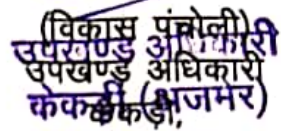 (विकास पंचोली)
उपखण्ड अधिकारी
उपखण्ड अधिकारी
केकड़ी (अजमेर)
केकड़ी,